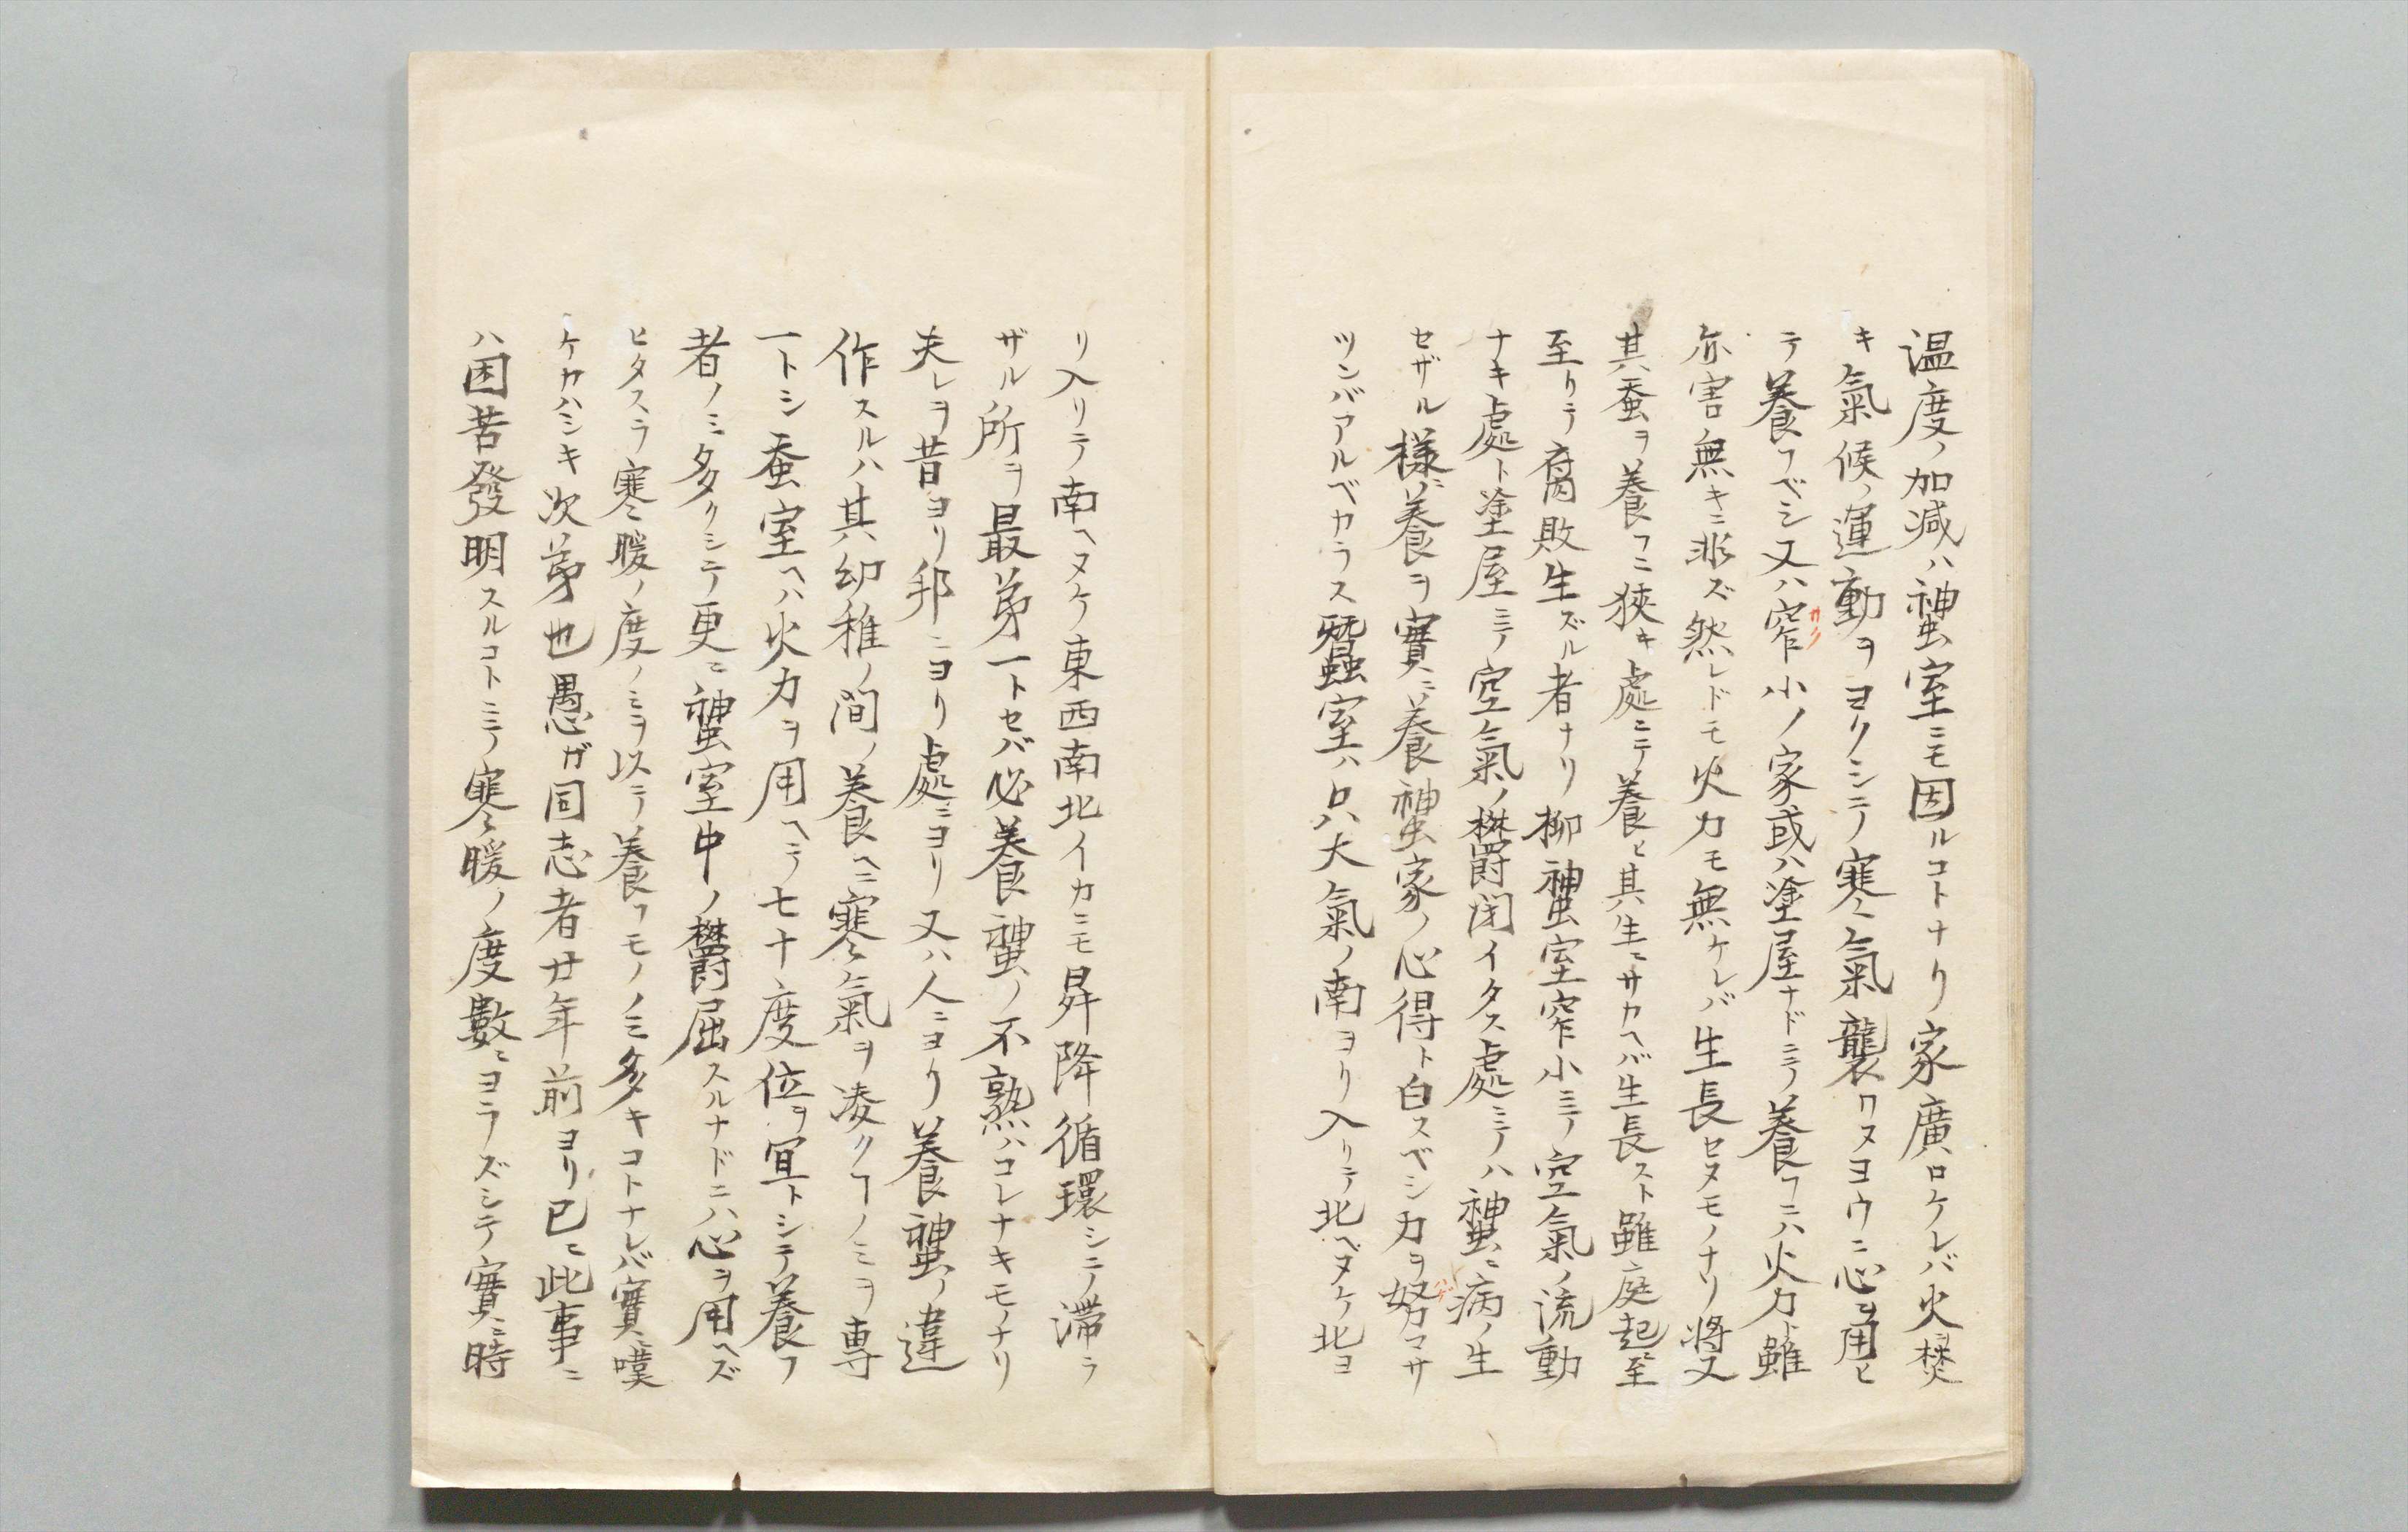 温度ノ加減ハ神蚕室ニモ因ルコトナリ家廣ロケレバ火焚
キ氣候ノ運動ヲヨクシテ寒氣襲ワヌヨウニ心ヲ用ヒ
テ養フベシ又ハ窄小ノ家或ハ塗屋ナドニテ養フニハ火力ト雖
亦害無キニ非ズ然レドモ火力モ無ケレバ生長セヌモノナリ將又
其蚕ヲ養フニ狹キ處ニテ養ヒ其生ニサカヘバ生長スト雖庭起ニ至
至リテ腐敗生ズル者ナリ抑神蚕室窄小ニテ空氣ノ流動
ナキ處ト塗屋ニテ空氣ノ欝閉イタス處ニテハ神蚕ニ病ノ生
セザル様ニ養ヲ實ニ養神蚕家ノ心得ト白スベシ力ヲ努マサ
ツンバアルベカラス蠶室ハ只大氣ノ南ヨリ入リテ北ヘヌケ北ヨ
リ入リテ南ヘヌケ東西南北イカニモ昇降循環シテ滞ラ
ザル所ヲ最第一トセバ必養神蚕ノ不熟ハコレナキモノナリ
夫レヲ昔ヨリ邦ニヨリ處ニヨリ又ハ人ニヨリ養神蚕ノ違
作スルハ其幼稚ノ間ノ養ヘニ寒氣ヲ凌クフノミヲ専
一トシ蚕室ヘハ火力ヲ用ヘテ七十度位ヲ宜トシテ養フ
者ノミ多クシテ更ニ神蚕室中ノ欝屈スルナドニハ心ヲ用ヘズ
ヒタスラ寒暖ノ度ノミヲ以テ養フモノノミ多キコトナレバ實ニ嘆
ケカハシキ次第也愚ガ同志者廿年前ヨリ已ニ此事ニ
ハ困苦發明スルコトニテ寒暖ノ度數ニヨラズシテ實ニ時